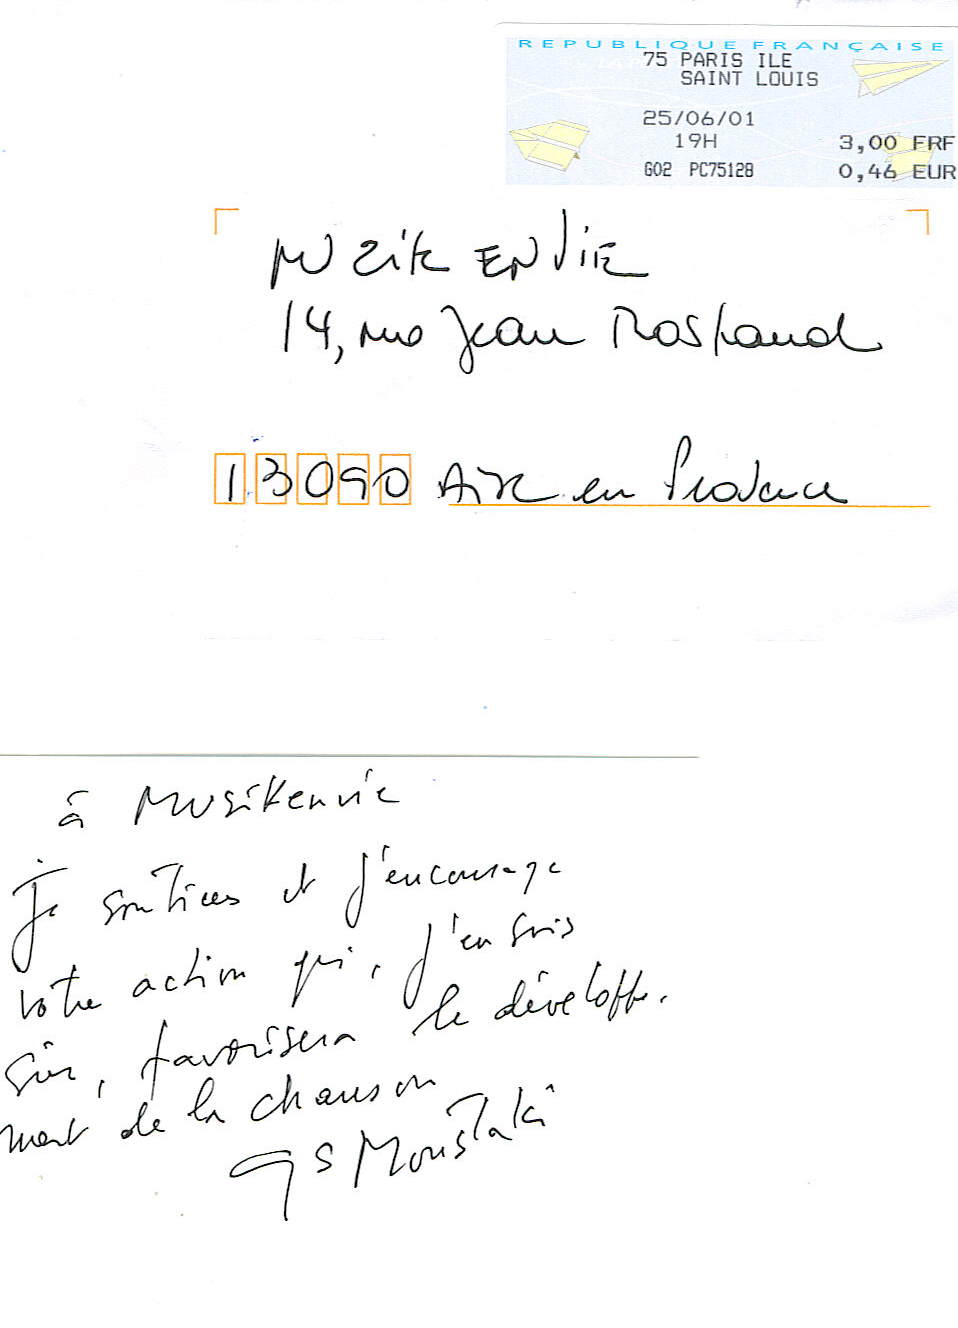 REPUBLIQUE FRANÇAISE
75 PARIS ILE
SAINT LOUIS
25/06/01
19H
3,00 FRF
G02 PC75128
0,46 EUR
MUZik ENVIE
14, rue Jean Rostand
13090 Aix en Provence
à Musikenvie
Je soutiens et j'encourage
votre action qui, j'en suis
sûr, favorisera le développe-
ment de la chanson
GS Moustaki